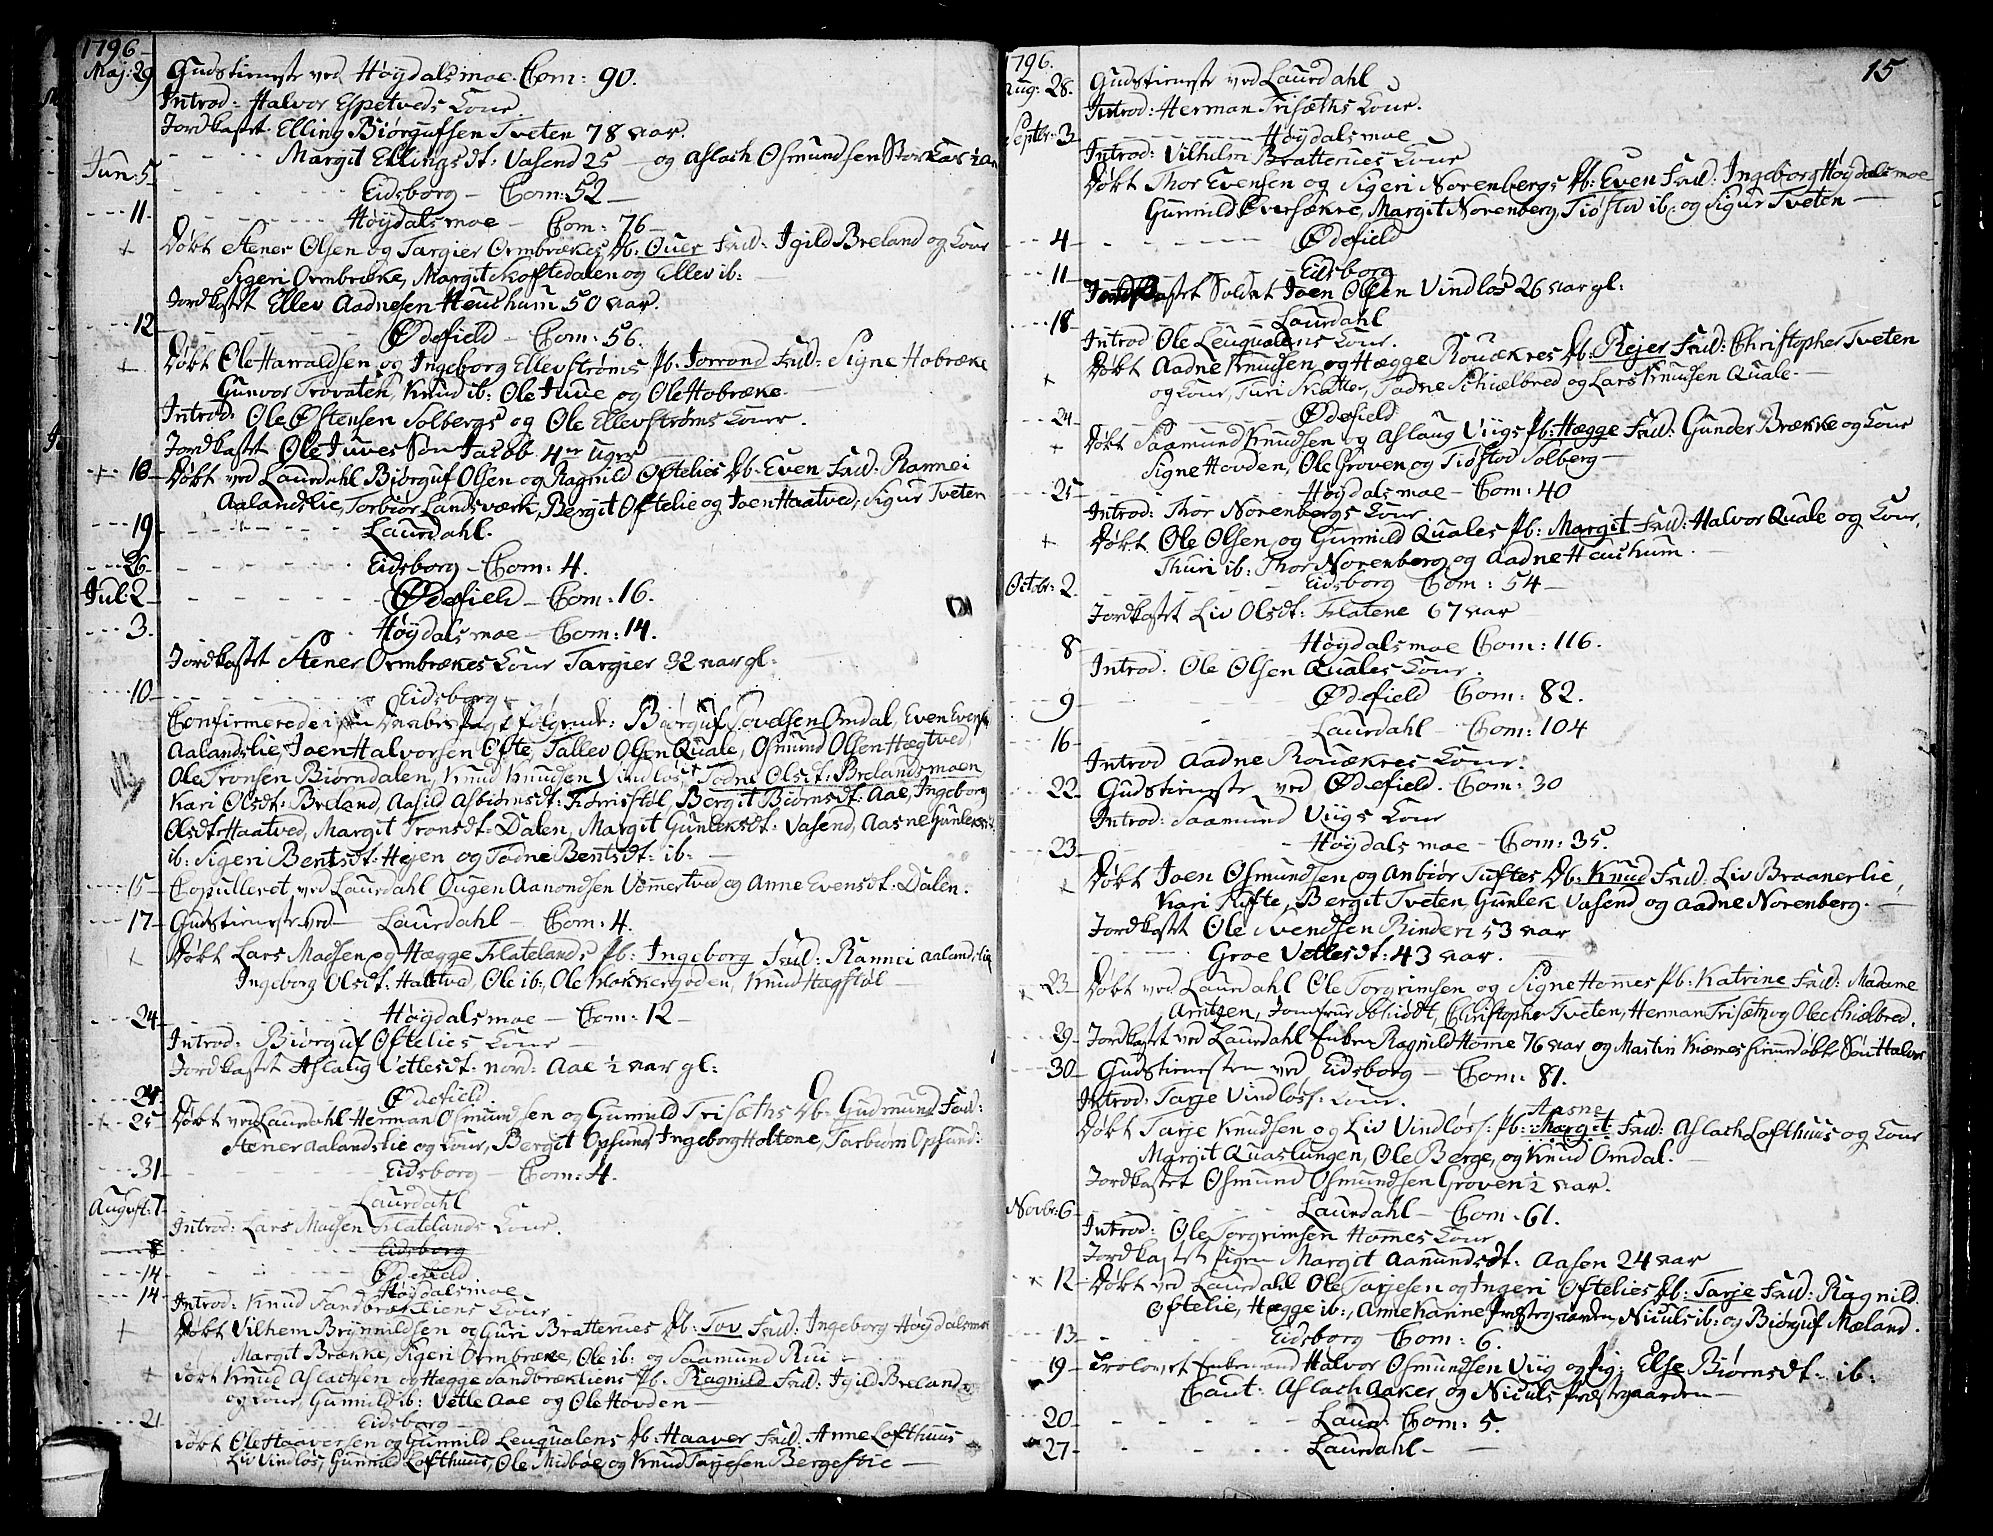 1796
Maj: 29 Gudstieneste ved Høÿdalsmoe. Com: 90.
Introd: Halvor Espetveds Kone
Jordkastet Elling Biørgufsen Tveten 78 aar.
Margit Ellingsdt: Vasend 25 og Aslach Osmundsen
Jun: 5 Eidsborg – Com: 52
11. Høÿdalsmoe – Com: 76
+ Døbt Stener Olsen og Targier Ormbrækes Db: Oues Fad: Igild Breland og Kone
Sigeri Ormbræke, Margit Koftedalen og Ellev ib:
Jordkastet Ellev Aadnesen Heushum 50 aar.
12 Ødefield – Com: 56.
+ Døbt Ole Harraldsen og Ingeborg Ellevstrøms Pb. Jorrond Fad: Signe Hobræke
Gunvor Trovaten, Knud ib: Ole Juve og Ole Hobræke.
Introd: Ole Østensen Solbergs og Ole Ellevstrøms Koner.
Jordkastet Ole Juves Søn Jacob 4 uger
+ 18 Døbt ved Laurdahl Biørguf Olsen og Ragnild Oftelies Db. Even Fad: Rannei
Aalandslie, Torbiør Landsværk, Bergit Oftelie og Joen Haatved, Sigur Tveten
19 Laurdahl.
26. Eidsborg – Com: 4.
Jul: 2 Ødefield – Com: 16.
3. Høÿdalsmoe – Com: 14.
Jordkastet Stener Ormbrækes Kone Targier 32 aar gl:
10 Eidsborg
Confirmerede følgende: Biørguf Tovelsen Omdal, Even Evens:
Aalandslie, Joen Halvorsen Ofte, Tallev Olsen Quale, Osmund Olsen Hægtved,
Ole Tronsen Biørndalen, Knud Knudsen Vindløs, Todne Olsdt: Brelandsmoen
Kari Olsdt: Breland, Aasild Asbiørnsdt: Bergit Biørnsdt: Aae, Ingeborg
Olsdt: Haatved, Margit Tronsdt: Dalen, Margit Gunleksdt: Vasend, Aasne Gunleksdt:
ib: Sigeri Bentsdt: Hejen og Todne Bentsdt: ib:
15 Copulleret ved Laurdahl Ougen Aanondsen Vommertved og Anne Evensdt: Dalen.
17 Gudstieneste ved Laurdahl – Com: 4.
+ Døbt Lars Madsen og Hægge Flatelands Pb: Ingeborg Fad: Rannei Aalandslie
Ingeborg Olsdt: Haatved, Ole ib:, Ole Klokkergoden, Knud Hægstøl
24 Høÿdalsmoe – Com: 12
Introd: Biørguf Oftelies Kone
Jordkastet Aslaug Vetlesdt: nord: Aae ½ aar gl:
24. Ødefield.
+ 25 Døbt ved Laurdahl Herman Osmundsen og Gunnild Trisæths Db. Gudmund Fad:
Stener Aalandslie og Kone, Bergit Opsund, Ingeborg Holtene, Tarbiørn Opsund:
31 Eidsborg – Com: 4.
August: 7 Laurdahl
Introd: Lars Madsen Flatelands Kone.
8 Eidsborg
14 Ødefield
14 Høÿdalsmoe
Introd: Knud Sandbrækliens Kone
+ Døbt Vilhem Brynnildsen og Guri Bratterues Db: Tov Fad: Ingeborg Høÿdalsmoe
Margit Brække, Sigeri Ormbræke, Ole ib: og Saamund Rui
+ Døbt Knud Aslachsen og Hægge Sandbrækliens Pb. Ragnild Fad: Igild Breland
og Kone, Gunnild ib: Vetle Aae og Ole Hovden
21 Eidsborg
Døbt Ole Haaversen og Gunnild Leuqualens Pb. Haaver Fad: Anne Lofthuus
Liv Vindløs, Gunnild Lofthuus, Ole Midbøe og Knud Tarjesen Bergestie
15
1796.
Aug: 28. Gudstieneste ved Laurdahl
Introd: Herman Trisæths Kone.
Septbr: 3 Høÿdalsmoe
Introd: Vilhelm Bratterues Kone
Døbt Thor Evensen og Sigeri Norenbergs Pb: Even Fad: Ingeborg Høÿdalsmoe
Gunnild Øversækre, Margit Norenberg, Tiøstov ib: og Sigur Tveten
4 Ødefield
11 Eidsborg
Jordkastet Soldat Joen Olsen Vindløs 26 aar gl:
18 Laurdahl
Introd Ole Leuqualens Kone.
+ Døbt Aadne Knudsen og Hægge Rouækres Db: Rejer Fad: Christopher Tveten
og Kone, Turi Skatter, Todne Schiælbred og Lars Knudsen Quale.
24 Ødefield
+ Døbt Saamund Knudsen og Aslaug Viigs Pb: Hægge Fad: Gunder Brække og Kone
Signe Hovden, Ole Groven og Tiøstod Solberg
25 Høÿdalsmoe – Com: 40
Introd: Thor Norenbergs Kone
+ Døbt Ole Olsen og Gunnild Quales Pb: Margit Fad: Halvor Quale og Kone,
Thuri ib: Thor Norenberg og Aadne Heushum.
Octobr: 2. Eidsborg Com: 54
Jordkastet Liv Olsdt: Flatene 67 aar
8 Høÿdalsmoe Com: 116.
Introd: Ole Olsen Quales Kone.
9 Ødefield Com: 82.
16 Laurdahl – Com: 104
Introd Aadne Rouækres Kone.
22 Gudstieneste ved Ødefield. Com: 30
Introd: Saamund Viigs Kone
23 Høÿdalsmoe – Com: 35.
+ Døbt Joen Osmundsen og Anbiør Tuftes Db: Knud Fad: Liv Braanerlie,
Kari Rifte, Bergit Tveten, Gunlek Vasend og Aadne Norenberg.
Jordkastet Ole Svendsen Rinderi 53 aar
Groe Vetlesdt: 43 aar.
+ 23 Døbt ved Laurdahl Ole Torgrimsen og Signe Hommes Pb: Katrine Fad: Madame
Arntzen, Jomfrue Schiødt, Christopher Tveten, Herman Trisæth og Ole Schiælbred.
29 Jordkastet ved Laurdahl Enken Ragnild Homme 76 aar og Martin Kiomes hiemdøbt Søn Halvor
30 Gudstienesten ved Eidsborg – Com: 81.
Introd: Tarje Vindløss: Kone.
Aasne
Døbt Tarje Knudsen og Liv Vindløss: Pb: Margit Fad: Aslach Lofthuus og Kone
Margit Quaslungen, Ole Berge, og Knud Omdal.
Jordkastet Osmund Osmundsen Groven ½ aar.
Novbr: 6 Laurdahl – Com. 61.
Introd: Ole Torgrimsen Hommes Kone
Jordkastet Pigen Margit Aanundsdt: Aasen 24 aar
+ 12 Døbt ved Laurdahl Ole Tarjesen og Ingeri Oftelies Db: Tarje Fad: Ragnild
Oftelie, Hægge ib:, Anne Karine Præstegaarden, Niculs ib: og Biørguf Mæland.
13 Eidsborg Com: 6.
19 Trolovet Enkemand Halvor Osmundsen Viig og Pig: Else Biørnsdt. ib:
Caut: Aslach Aaker og Niculs Præstegaarden
20 Laurd: Com: 5.
27 Laurdahl